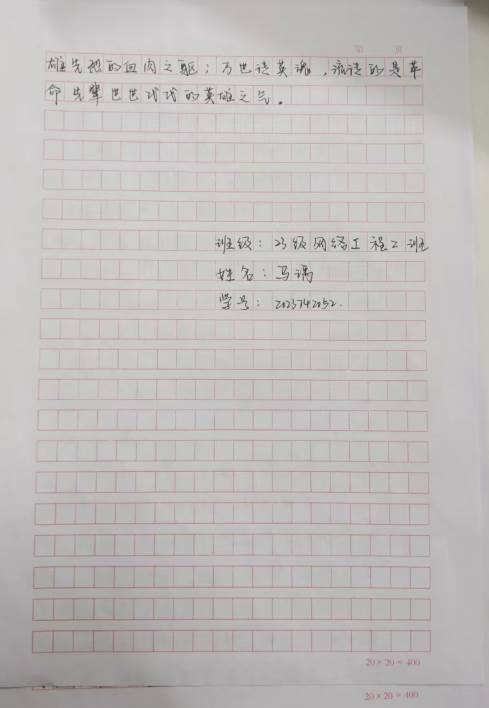 第 页
雄先烈的血肉之躯；万世诵英魂，流诵的是革
命先辈世世代代的英雄之气。
班级：23级网络工程2班
姓名：马瑀
学号：2023742052.
20×20=400
20×20=400